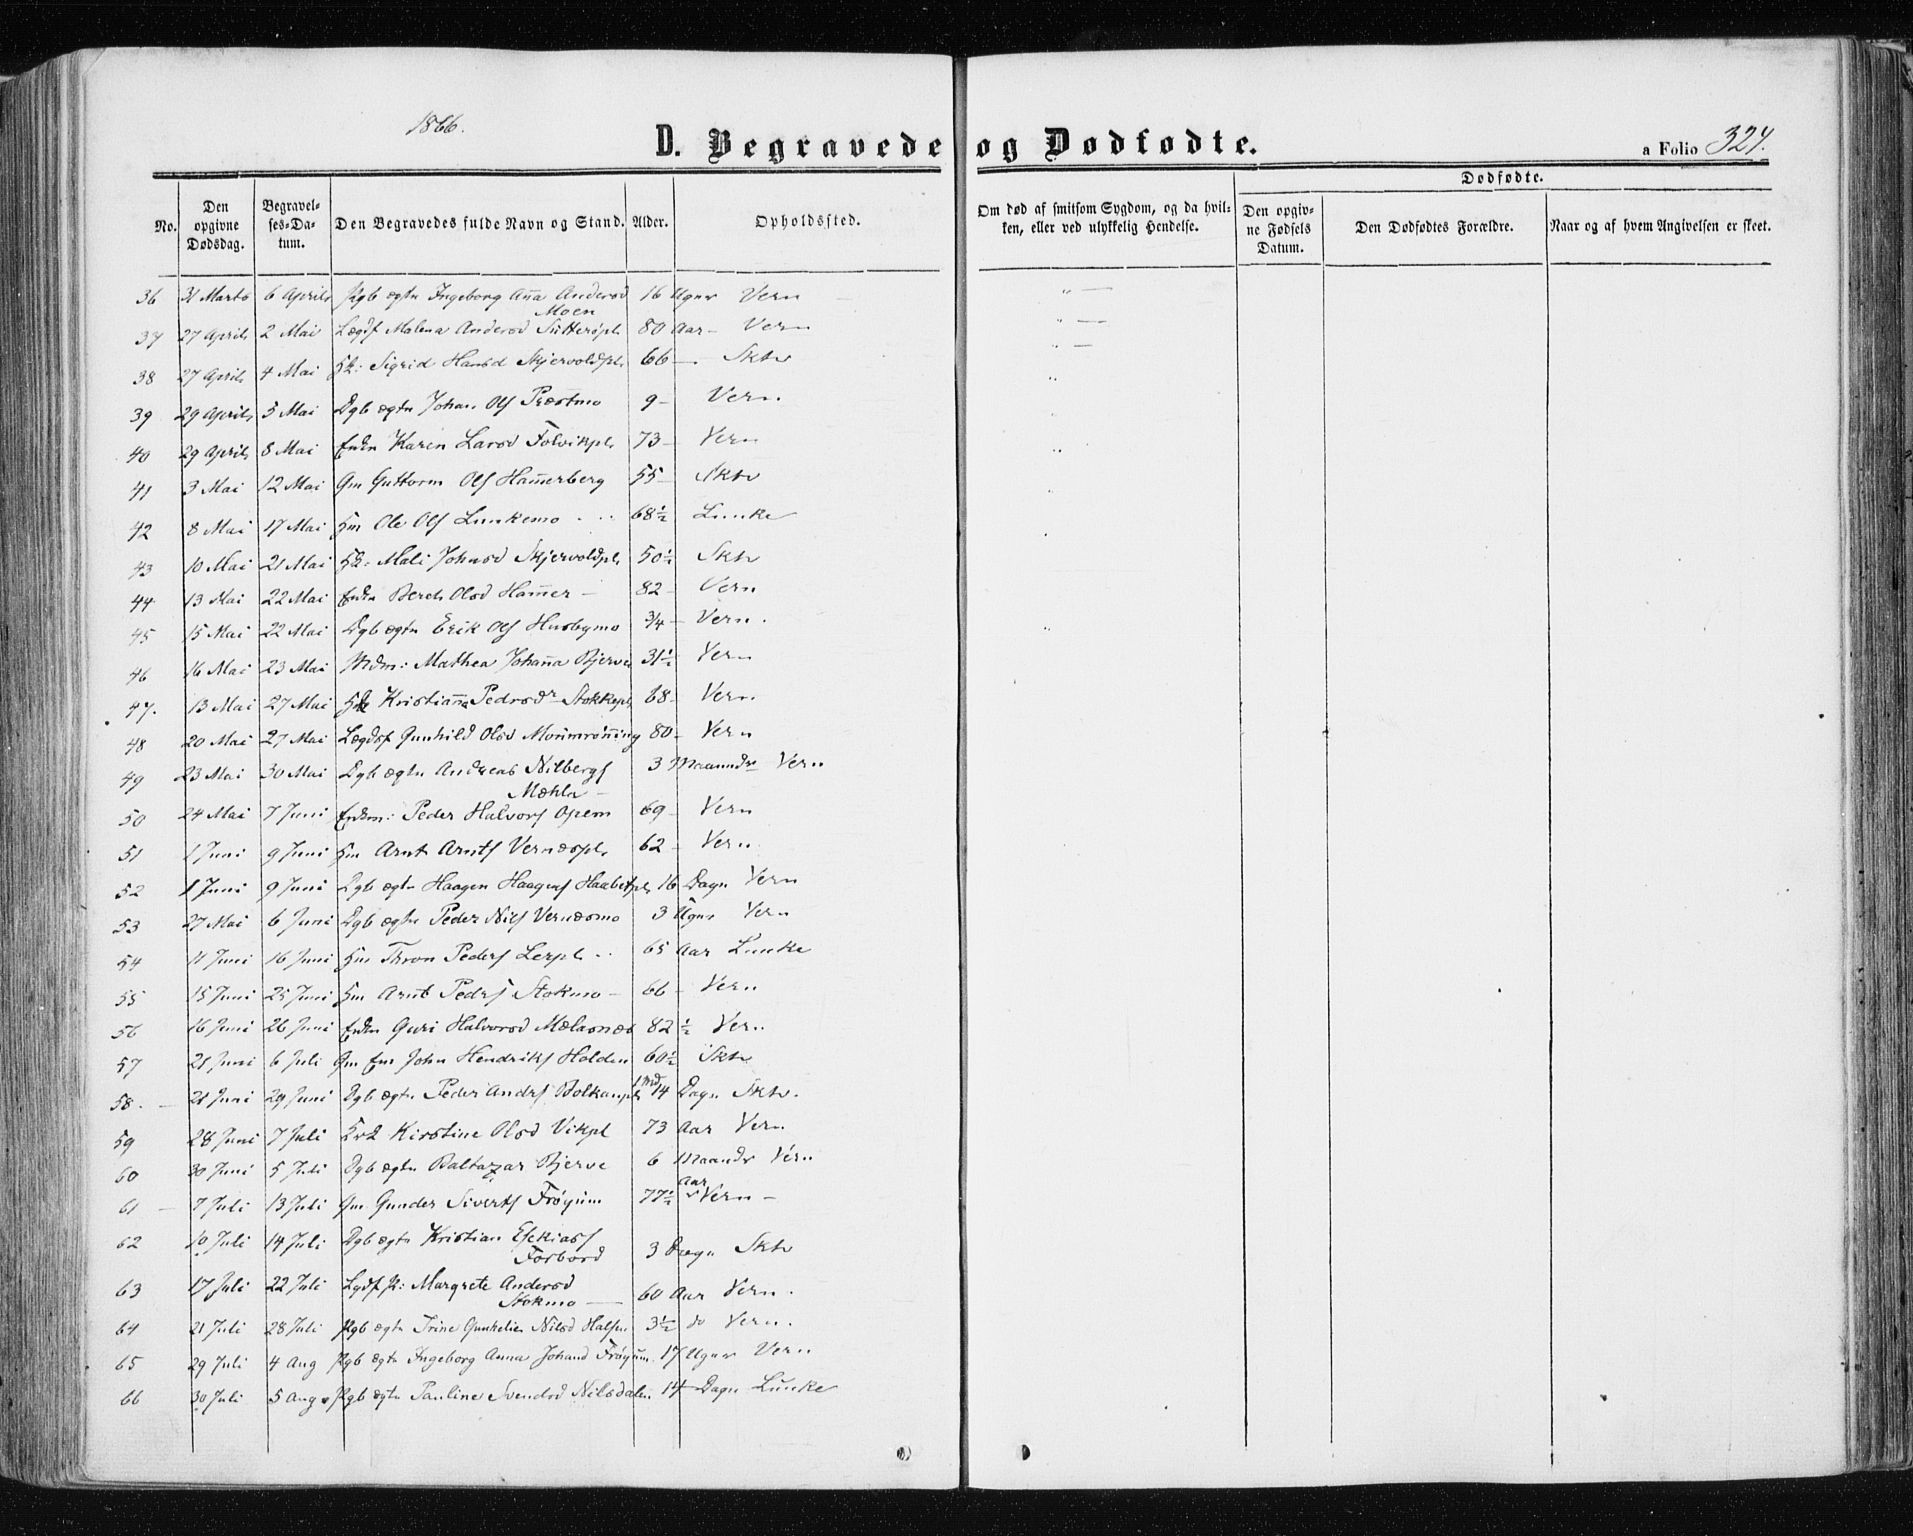 1866.
D. Begravede og Dødfødte.
a Folio 324.
No.
Den opgivne Dødsdag.
Begravelses-Datum.
Den Begravedes fulde Navn og Stand.
Alder.
Opholdssted.
Om død af smitsom Sygdom, og da hvilken, eller ved ulykkelig Hendelse.
Dødfødte.
Den opgivne Fødsels Datum.
Den Dødfødtes Forældre.
Naar og af hvem Angivelsen er skeet.
36 31 Marts 6 Aprils Pgb ægte Ingeborg Anna Andersd Moen 16 Uger Vern
37 27 Aprils 2 Mai Lægdsl Malena Andersd Sutterøpl. 80 Aar - Vern
38 27 Aprils 4 Mai Sigrid Hansd Skjervoldpl. 66 - Sktv
39 29 Aprils 5 Mai Dgb ægte Johan Ols Præstmo 9 - Vern
40 29 Aprils 8 Mai Enkn Karen Larsd Folvikpl. 73 - Vern
41 3 Mai 12 Mai Gm Guttorm Ols Hamerberg 55 - Sktv
42 8 Mai 17 Mai Hm Ole Ols Lunkemo 68½ Lunke
43 10 Mai 21 Mai Mali Johnsd Skjervoldpl. 50½ Sktv
44 13 Mai 22 Mai Enkn Bereth Olsd Hamer - 82 - Vern
45 15 Mai 22 Mai Dgb ægte Erik Ols Husbymo 3/4 - Vern.
46 16 Mai 23 Mai Mdm: Mathea Johanna Bjerve 31½ Vern
47. 13 Mai 27 Mai Kristianna Pedersdr Stokkepl. 68 - Vern
48 20 Mai 27 Mai Lægdsl Gunhild Olsd Morimrønning 80 - Vern
49 23 Mai 30 Mai Dgb ægte Andreas Nilbergs Mæhla - 3 Maaneder Vern
50 24 Mai 7 Juni Enkm: Peder Halvors Opem 69 - Vern
51 1 Juni 9 Juni Hm Arnt Arnts Vernæspl. 62 - Vern
52 1 Juni 9 Juni Dgb ægte Haagen Haagens Haabetpl. 16 Dage Vern
53 27 Mai 6 Juni Dgb ægte Peder Nils Vernæsmo 3 Uger Vern
54 11 Juni 16 Juni Hm Thron Peders Lerpl. 65 Aar Lunke
55 15 Juni 25 Juni Hm Arnt Peders Stokmo - 66 - Vern
56 16 Juni 26 Juni Enkn Guri Halvorsd Mælasnæs 82½ Vern
57 21 Juni 6 Juli Gm Em John Hendriks Holden 60½ Sktv
58. - 21 Juni 29 Juni Dgb ægte Peder Anders Bolkanpl. 1 Md 14 Dage Sktv.
59 28 Juni 7 Juli Kirstine Olsd Vikpl 73 Aar Vern
60 30 Juni 5 Juli Dgb ægte Baltazar Bjerve 6 Maander Vern
61 - 7 Juli 13 Juli Gm Gunder Siverts Frøyum 77½ Aar Vern -
62 10 Juli 14 Juli Dgb ægte Kristian Esekias Forbord 3 Dage Sktv
63 17 Juli 22 Juli Lgdsl P: Margrete Andersd Stokmo - 60 Aar Vern.
64 21 Juli 28 Juli Pgb ægte Trine Gunhelie Nilsd Halsen 3½ do Vern.
65 29 Juli 4 Aug Pgb ægte Ingeborg Anna Johansd Frøyum 17 Uger Vern
66 30 Juli 5 Aug Pgb ægte Pauline Svendsd Nilsdalen 14 Dage Lunke